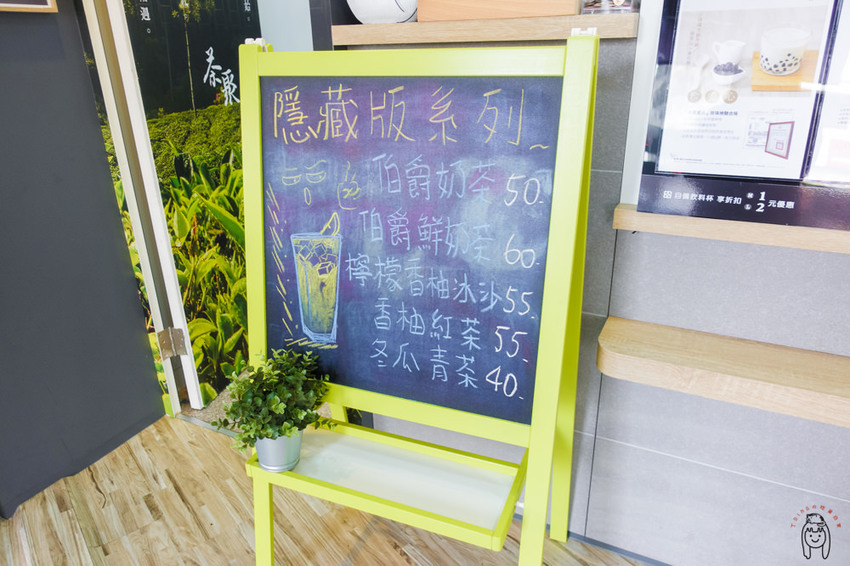 隱藏版系列~
伯爵奶茶 50.
伯爵鮮奶茶 60.
檸檬香柚冰沙 55.
香柚紅茶 55.
冬瓜青茶 40.
茶聚
自備飲料杯 享折扣 1 2 元優惠